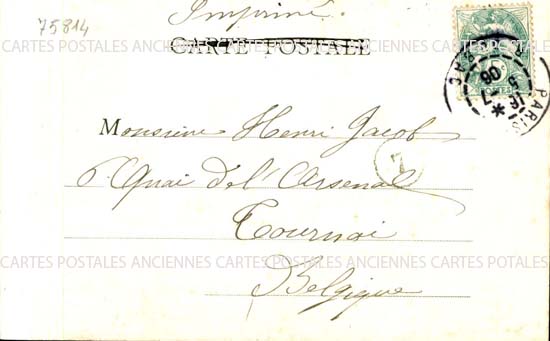 75814
Imprimé.
CARTE POSTALE
PARIS
16
5
06
POSTES
CARTES POSTALES ANCIENNES CARTES POSTALES ANCIENNES CARTES POSTALES
Monsieur Henri Jacob
6 Quai de l'Arsenal
1
Tournai
CARTES POSTALES ANCIENNES CARTES POSTALES ANCIENNES CARTES POSTALES
Belgique